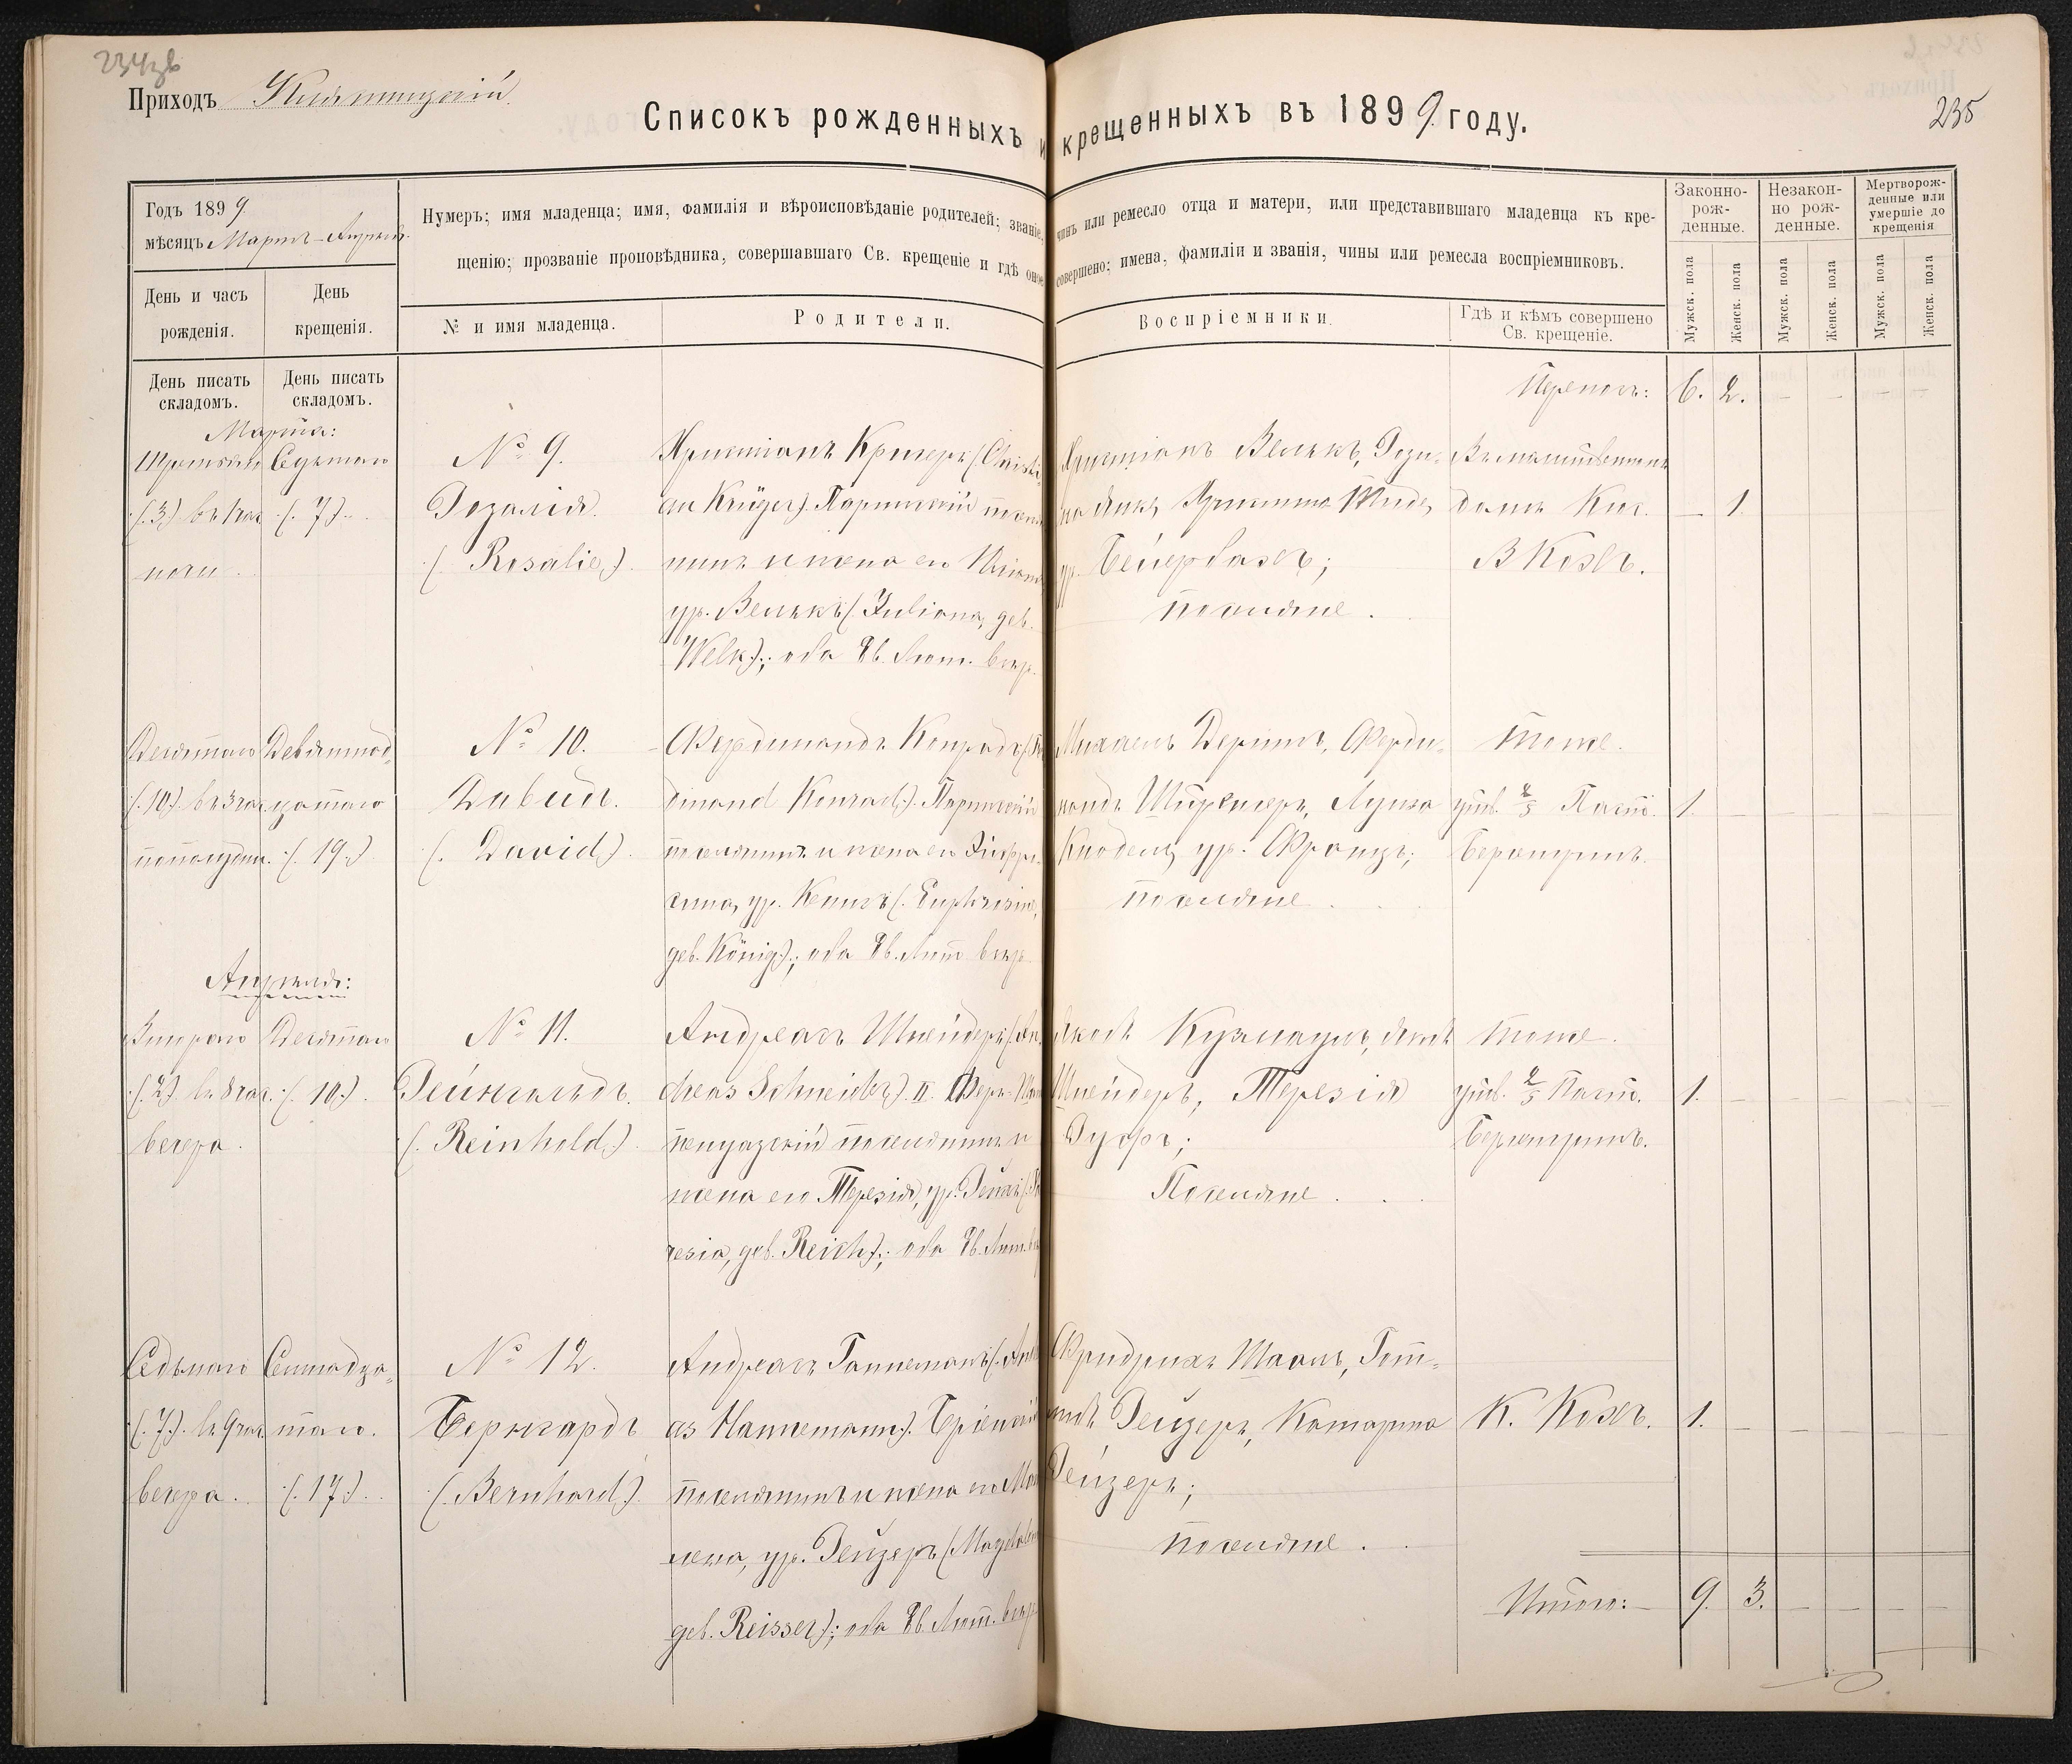 234зв
Приходъ Клястицкій.
Списокъ рожденныхъ и крещенныхъ въ 1899 году.
235
Годъ 1899.
мѣсяцъ Мартъ-Апрѣль.
Нумеръ; имя младенца; имя, фамилія и вѣроисповѣданіе родителей; званіе, чинъ или ремесло отца и матери, или представившаго младенца къ кре-
щенію; прозваніе проповѣдника, совершавшаго Св. крещеніе и гдѣ оное совершено; имена, фамиліи и званія, чины или ремесла воспріемниковъ.
Законно-
рож-
денные.
Незакон-
но рож-
денные.
Мертворож-
денные или
умершіе до
крещенія
День и часъ
рожденія.
День
крещенія.
№ и имя младенца.
Родители.
Воспріемники.
Гдѣ и кѣмъ совершено
Св. крещеніе.
Мужск. пола
Женск. пола
Мужск. пола
Женск. пола
Мужск. пола
Женск. пола
День писать
складомъ.
День писать
складомъ.
Перенось: 6. 2. — — — —
Марта:
Третьяго
(.3.) въ 1 час
ночи.
Седьмаго
(. 7.).
№ 9.
Розалія.
(. Rosalie.)
Христіанъ Кригеръ (. Christi-
an Krüger.). Парижскій посел
нинъ и жена его Юліана
ур. Велькъ (. Juliana, geb.
Welk.).; оба Ев. Лют. вѣр.
Христіанъ Велькъ, Рози-
на Янке, Христина Тиде,
ур. Бейербахъ;
поселяне.
домъ Кис.
В Кохъ.
— 1.
Десятаго
(.10.) въ 3 час.
пополудни.
Девятнад-
цатаго
(. 19.)
№ 10.
Давидъ.
(. David.)
Фердинандъ Конрадъ (. Fer
dinand Konrad.). Парижскій
поселянинъ и жена его Эйфро-
сина, ур. Кенигъ (. Euphrosine,
geb. König.).; оба Ев. Лют. вѣр.
Михаелъ Дерингъ, Ферди-
нандъ Штрекеръ, Луиза
Кнодель, ур. Францъ;
поселяне.
Тоже.
утв. 2/5 Паст.
Беренгримъ.
1. — — — — —
Апрѣля:
Втораго
(.2.) въ 8 час.
вечера.
Десятаго
(. 10.).
№ 11.
Рейнгольдъ.
(. Reinhold.)
Андреасъ Шнейдеръ (. An-
dreas Schneider.). II. Феръ-Шам
пенуазскій поселянинъ и
жена его Терезія, ур. Рейхъ (. Te
resia, geb. Reich.).; оба Ев. Лют. вѣр
Якобъ Кузмаулъ, Якобъ
Шнейдеръ, Терезія
Руфъ;
Поселяне.
тоже.
утв. 2/5 Паст.
Беренгримъ.
1. — — — — —
Седьмаго
(. 7.). въ 9 час
вечера.
Семнадца-
таго.
(. 17.).
№ 12.
Бернгардъ
(. Bernhard.)
Андреасъ Ганнеманъ (. Andre
as Hannemann.). Бріенскій
поселянинъ и жена его Маг
лена, ур. Рейзеръ (. Magdalena
geb. Reisser.).; оба Ев. Лют. вѣр.
Фридрихъ Шааль, Гот-
либъ Рейзеръ, Катарина
Рейзеръ;
поселяне.
К. Кохъ.
1. — — — — —
Итого: 9. 3. — — — —